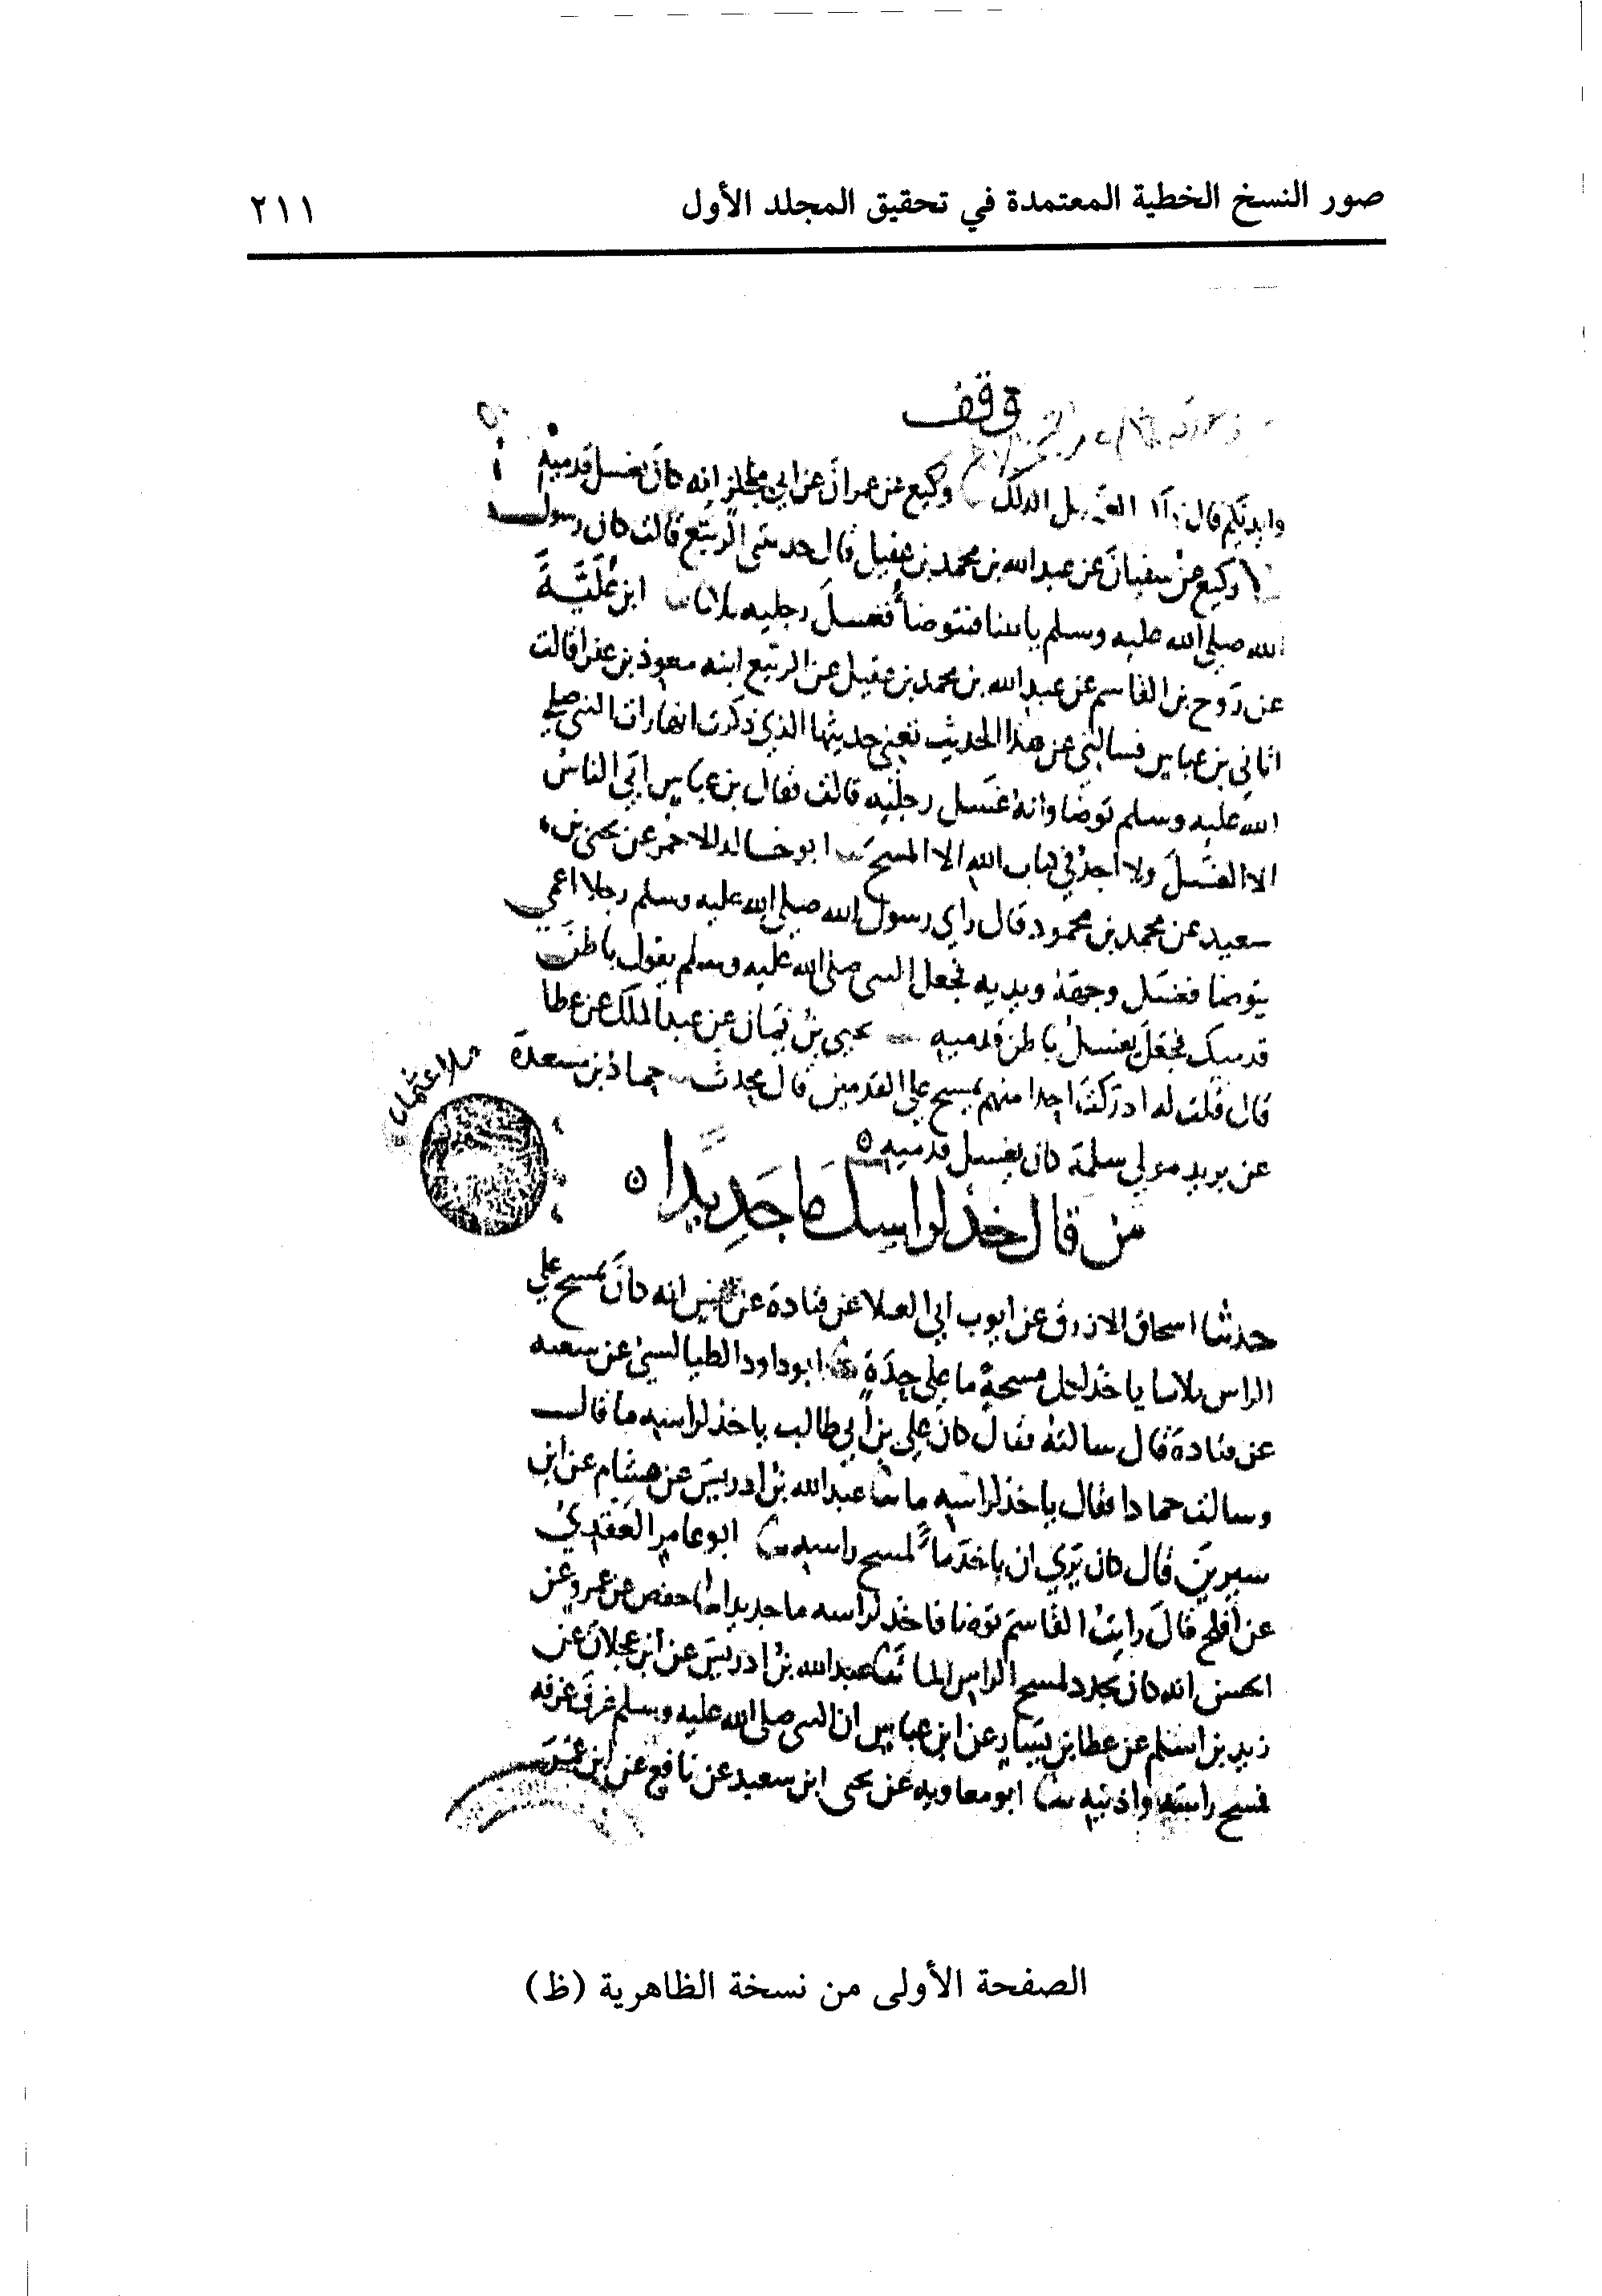 صور النسخ الخطية المعتمدة في تحقيق المجلد الأول ٢١١
وقف
وايديكم قال الدلك وكيع عن عمران عن ابي مجلز انه كان يغسل قدميه
وكيع عن سفيان عن عبد الله بن محمد بن عقيل قال حدثتني الربيع قالت كان رسول
الله صلى الله عليه وسلم ياتينا فتوضا فغسل رجليه ثلاثا ابن علية
عن روح بن القاسم عن عبد الله بن محمد بن عقيل عن الربيع ابنه معوذ بن عفرا قالت
اتاني بن عباس فسالني عن هذا الحديث تعني حديثها الذي ذكرت انها رات النبي صلى
الله عليه وسلم توضا وانه غسل رجليه قالت فقال بن عباس ابي الناس
الا الغسل ولا اجد في كتاب الله الا المسح ابو خالد الاحمر عن يحيى بن
سعيد عن محمد بن محمود قال راي رسول الله صلى الله عليه وسلم رجلا اعمى
يتوضا فغسل وجهه ويديه فجعل النبي صلى الله عليه وسلم يقول باطن
قدميك فجعل يغسل باطن قدميه يحيى بن يمان عن عبد الملك عن عطا
قال قلت له ادركت احدا منهم يمسح على القدمين قال محدث حماد بن مسعدة
عن يزيد مولى سلمة كان يغسل قدميه ٥
من قال خذ لراسك ما جديدا ٥
حدثنا اسحاق الازرق عن ايوب ابي العلا عن قتادة عن انس انه كان يمسح على
الراس ثلاثا ياخذ لكل مسحة ما على حدة ابو داود الطيالسي عن سعيد
عن قتادة قال سالته فقال كان علي بن أبي طالب ياخذ لراسه ما قال
وسالت حمادا فقال ياخذ لراسه ما عبد الله بن ادريس عن هشام عن ابن
سيرين قال كان يري ان ياخذ ما لمسح راسه ابو عامر العقدي
عن افلح قال رايت القاسم توضا فاخذ لراسه ما جديدا حفص عن عمرو عن
الحسن انه كان يجدد لمسح الراس الما عبد الله بن ادريس عن ابن عجلان عن
زيد بن اسلم عن عطا بن يسار عن ابن عباس ان النبي صلى الله عليه وسلم غرف غرفه
فمسح راسه واذنيه ابو معاويه عن يحيى ابن سعيد عن نافع عن ابن عمر
الصفحة الأولى من نسخة الظاهرية (ظ)